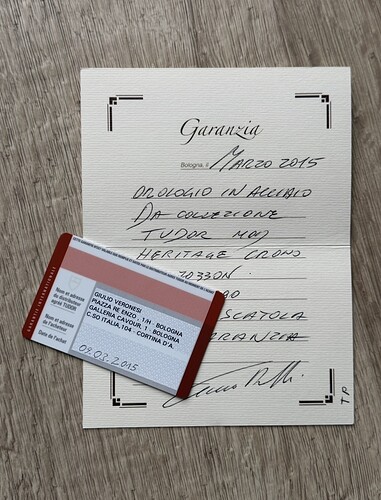 Garanzia
Bologna, il MARZO 2015
OROLOGIO IN ACCIAIO
DA COLLEZIONE
TUDOR MOD
HERITAGE CRONO
70330N
SCATOLA
GARANTIE INTERNATIONALE
Nom et adresse
du distributeur
agréé TUDOR
Nom et adresse
de l'acheteur
Date de l'achat
GIULIO VERONESI
PIAZZA RE ENZO, 1/H - BOLOGNA
GALLERIA CAVOUR, 1 - BOLOGNA
C.SO ITALIA, 104 - CORTINA D'A.
09.03.2015
TP